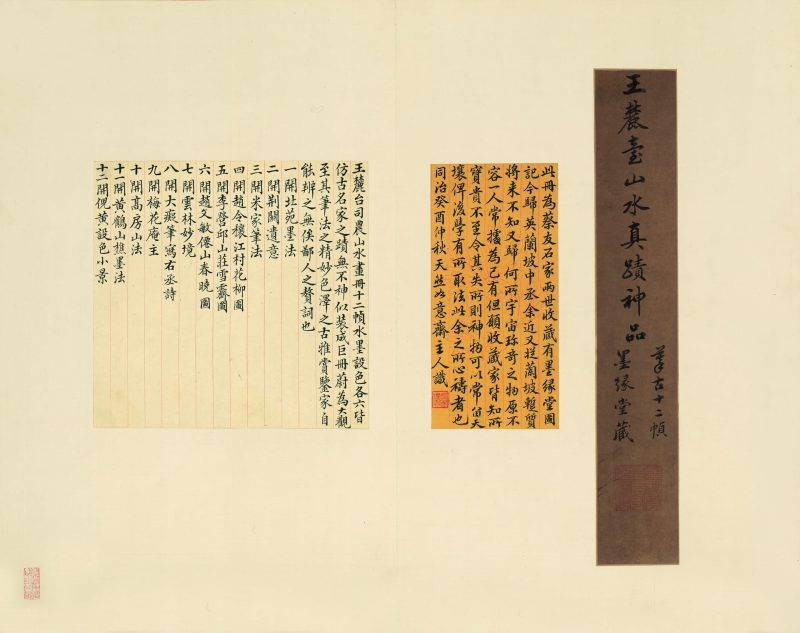 王麓臺山水真蹟神品
摹古十二幀
墨緣堂藏
此冊為蔡友石家兩世收藏有墨緣堂圖
記今歸英蘭坡中丞余近又從蘭坡暫質
將来不知又歸何所宇宙珎奇之物原不
容一人常擅為己有但願收藏家皆知所
寶貴不至令其失所則神物可以常留天
壤俾後學有所取法此余之所心禱者也
同治癸酉仲秋天䒾如意齋主人識
王麓台司農山水畫冊十二幀水墨設色各六皆
仿古名家之蹟無不神似裝成巨冊蔚為大觀
至其筆法之精妙色澤之古雅賞鑒家自
能辨之無俟鄙人之贅詞也
一開北苑墨法
二開荆關遺意
三開米家筆法
四開趙令穰江村花柳圖
五開李營邱山莊雪霽圖
六開趙文敏僊山春曉圖
七開雲林妙境
八開大癡筆寫右丞詩
九開梅花庵主
十開高房山法
十一開黃鶴山樵墨法
十二開倪黃設色小景